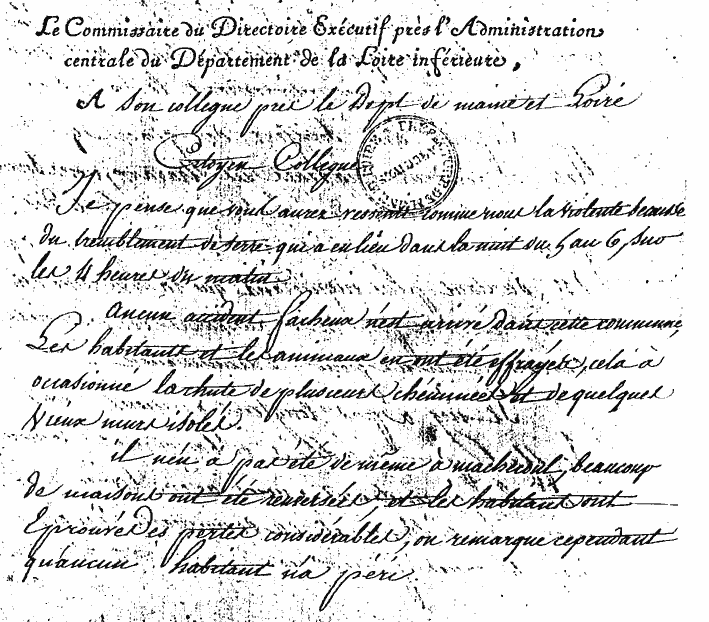 Le Commissaire du Directoire Exécutif près l'Administration
centrale du Département de la Loire inférieure,
A Son collegue près le Dept de maine et Loire
Citoyen Collegue
Je pense que vous aurez ressenti comme nous la violente secousse
du tremblement de terre qui a eu lieu dans la nuit du 5 au 6, Sur
les 4 heures du matin
Aucun accident facheux n'est arrivé dans cette commune,
Les habitants et les animaux en ont été effrayés, celà à
occasionné la chute de plusieurs chéminées et de quelques
vieux murs isolés.
il n'en a pas été de même à machecoul, beaucoup
de maisons ont été renversées, et les habitans ont
Eprouvés des pertes considérables, on remarque cependant
qu'aucun habitant n'a péri.